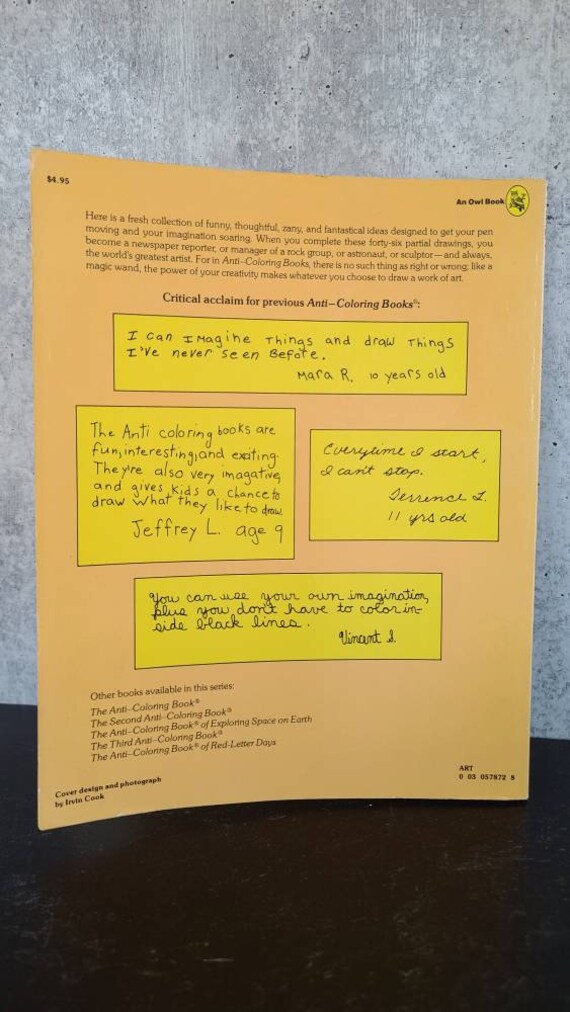 $4.95
An Owl Book
Here is a fresh collection of funny, thoughtful, zany, and fantastical ideas designed to get your pen
moving and your imagination soaring. When you complete these forty-six partial drawings, you
become a newspaper reporter, or manager of a rock group, or astronaut, or sculptor—and always,
the world's greatest artist. For in Anti-Coloring Books, there is no such thing as right or wrong; like a
magic wand, the power of your creativity makes whatever you choose to draw a work of art.
Critical acclaim for previous Anti-Coloring Books®:
I can Imagine Things and draw Things
I've never seen Before.
Mara R. 10 years old
The Anti coloring books are
fun, interesting, and exating.
They're also very imagative,
and gives kids a chance to
draw what they like to draw.
Jeffrey L. age 9
Everytime I start,
I can't stop.
Terrence L.
11 yrs old
You can use your own imagination,
plus you don't have to color in-
side black lines.
Vincent S.
Other books available in this series:
The Anti-Coloring Book®
The Second Anti-Coloring Book®
The Anti-Coloring Book® of Exploring Space on Earth
The Third Anti-Coloring Book®
The Anti-Coloring Book® of Red-Letter Days
Cover design and photograph
by Irvin Cook
ART
0 03 057872 8